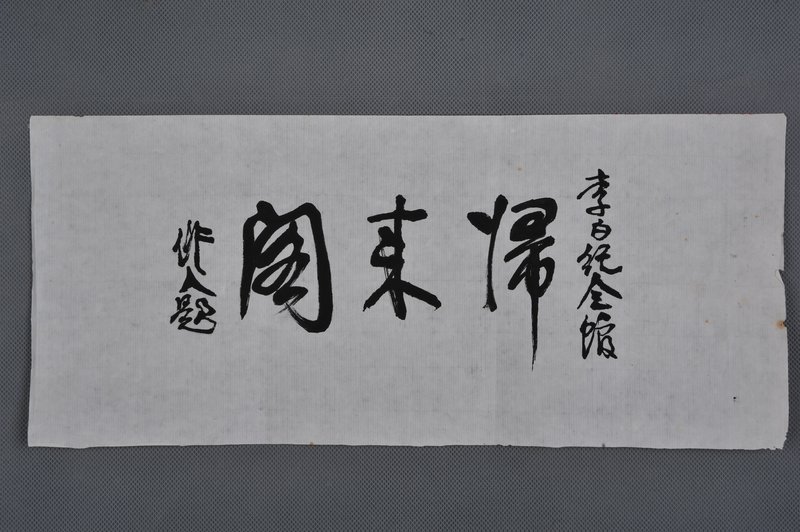 李白纪念馆
归来阁
作人题